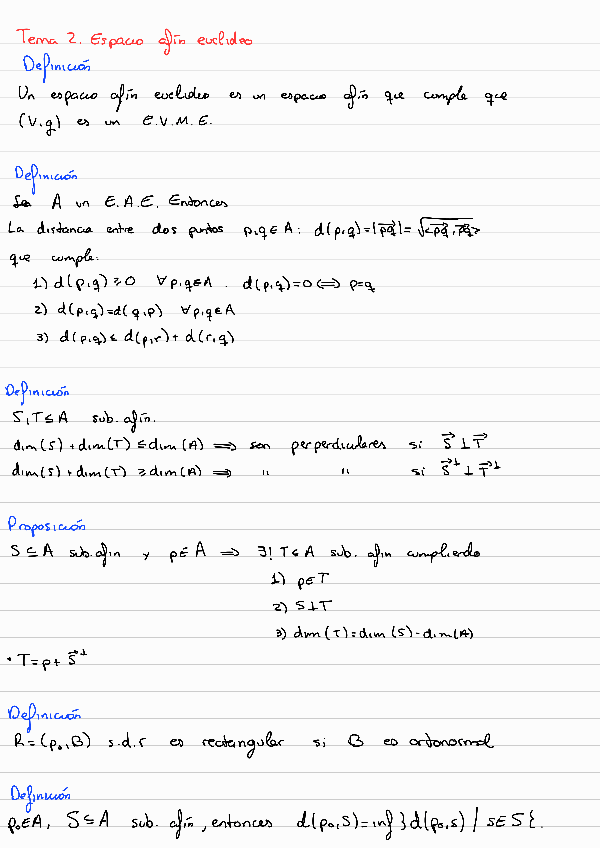 Tema 2. Espacio afín euclídeo
Definición
Un espacio afín euclideo es un espacio afín que cumple que
(V,g) es un E.V.M.E.
Definición
Sea A un E.A.E. Entonces
La distancia entre dos puntos p,q∈A: d(p,q)=|p⃗q⃗|= √<p⃗q⃗,p⃗q⃗>
que cumple:
1) d(p,q) ≥0 ∀p,q∈A . d(p,q)=0 ⟺ p=q
2) d(p,q)=d(q,p) ∀p,q∈A
3) d(p,q) ≤ d(p,r) + d(r,q)
Definición
S,T≤A sub. afín.
dim(S) + dim(T) ≤ dim(A) ⟹ son perpendiculares si S⃗ ⊥ T⃗
dim(S) + dim(T) ≥ dim(A) ⟹ " " si S⃗^⊥ ⊥ T⃗^⊥
Proposición
S⊆A sub. afín y p∈A ⟹ ∃! T⊆A sub. afín cumpliendo
1) p∈T
2) S⊥T
3) dim(T)=dim(S)-dim(A)
· T=p+ S⃗^⊥
Definición
R=(p₀,B) s.d.r es rectangular si B es ortonormal
Definición
p₀∈A, S⊆A sub. afín, entonces d(p₀,S)=inf}d(p₀,s) / s∈S{.